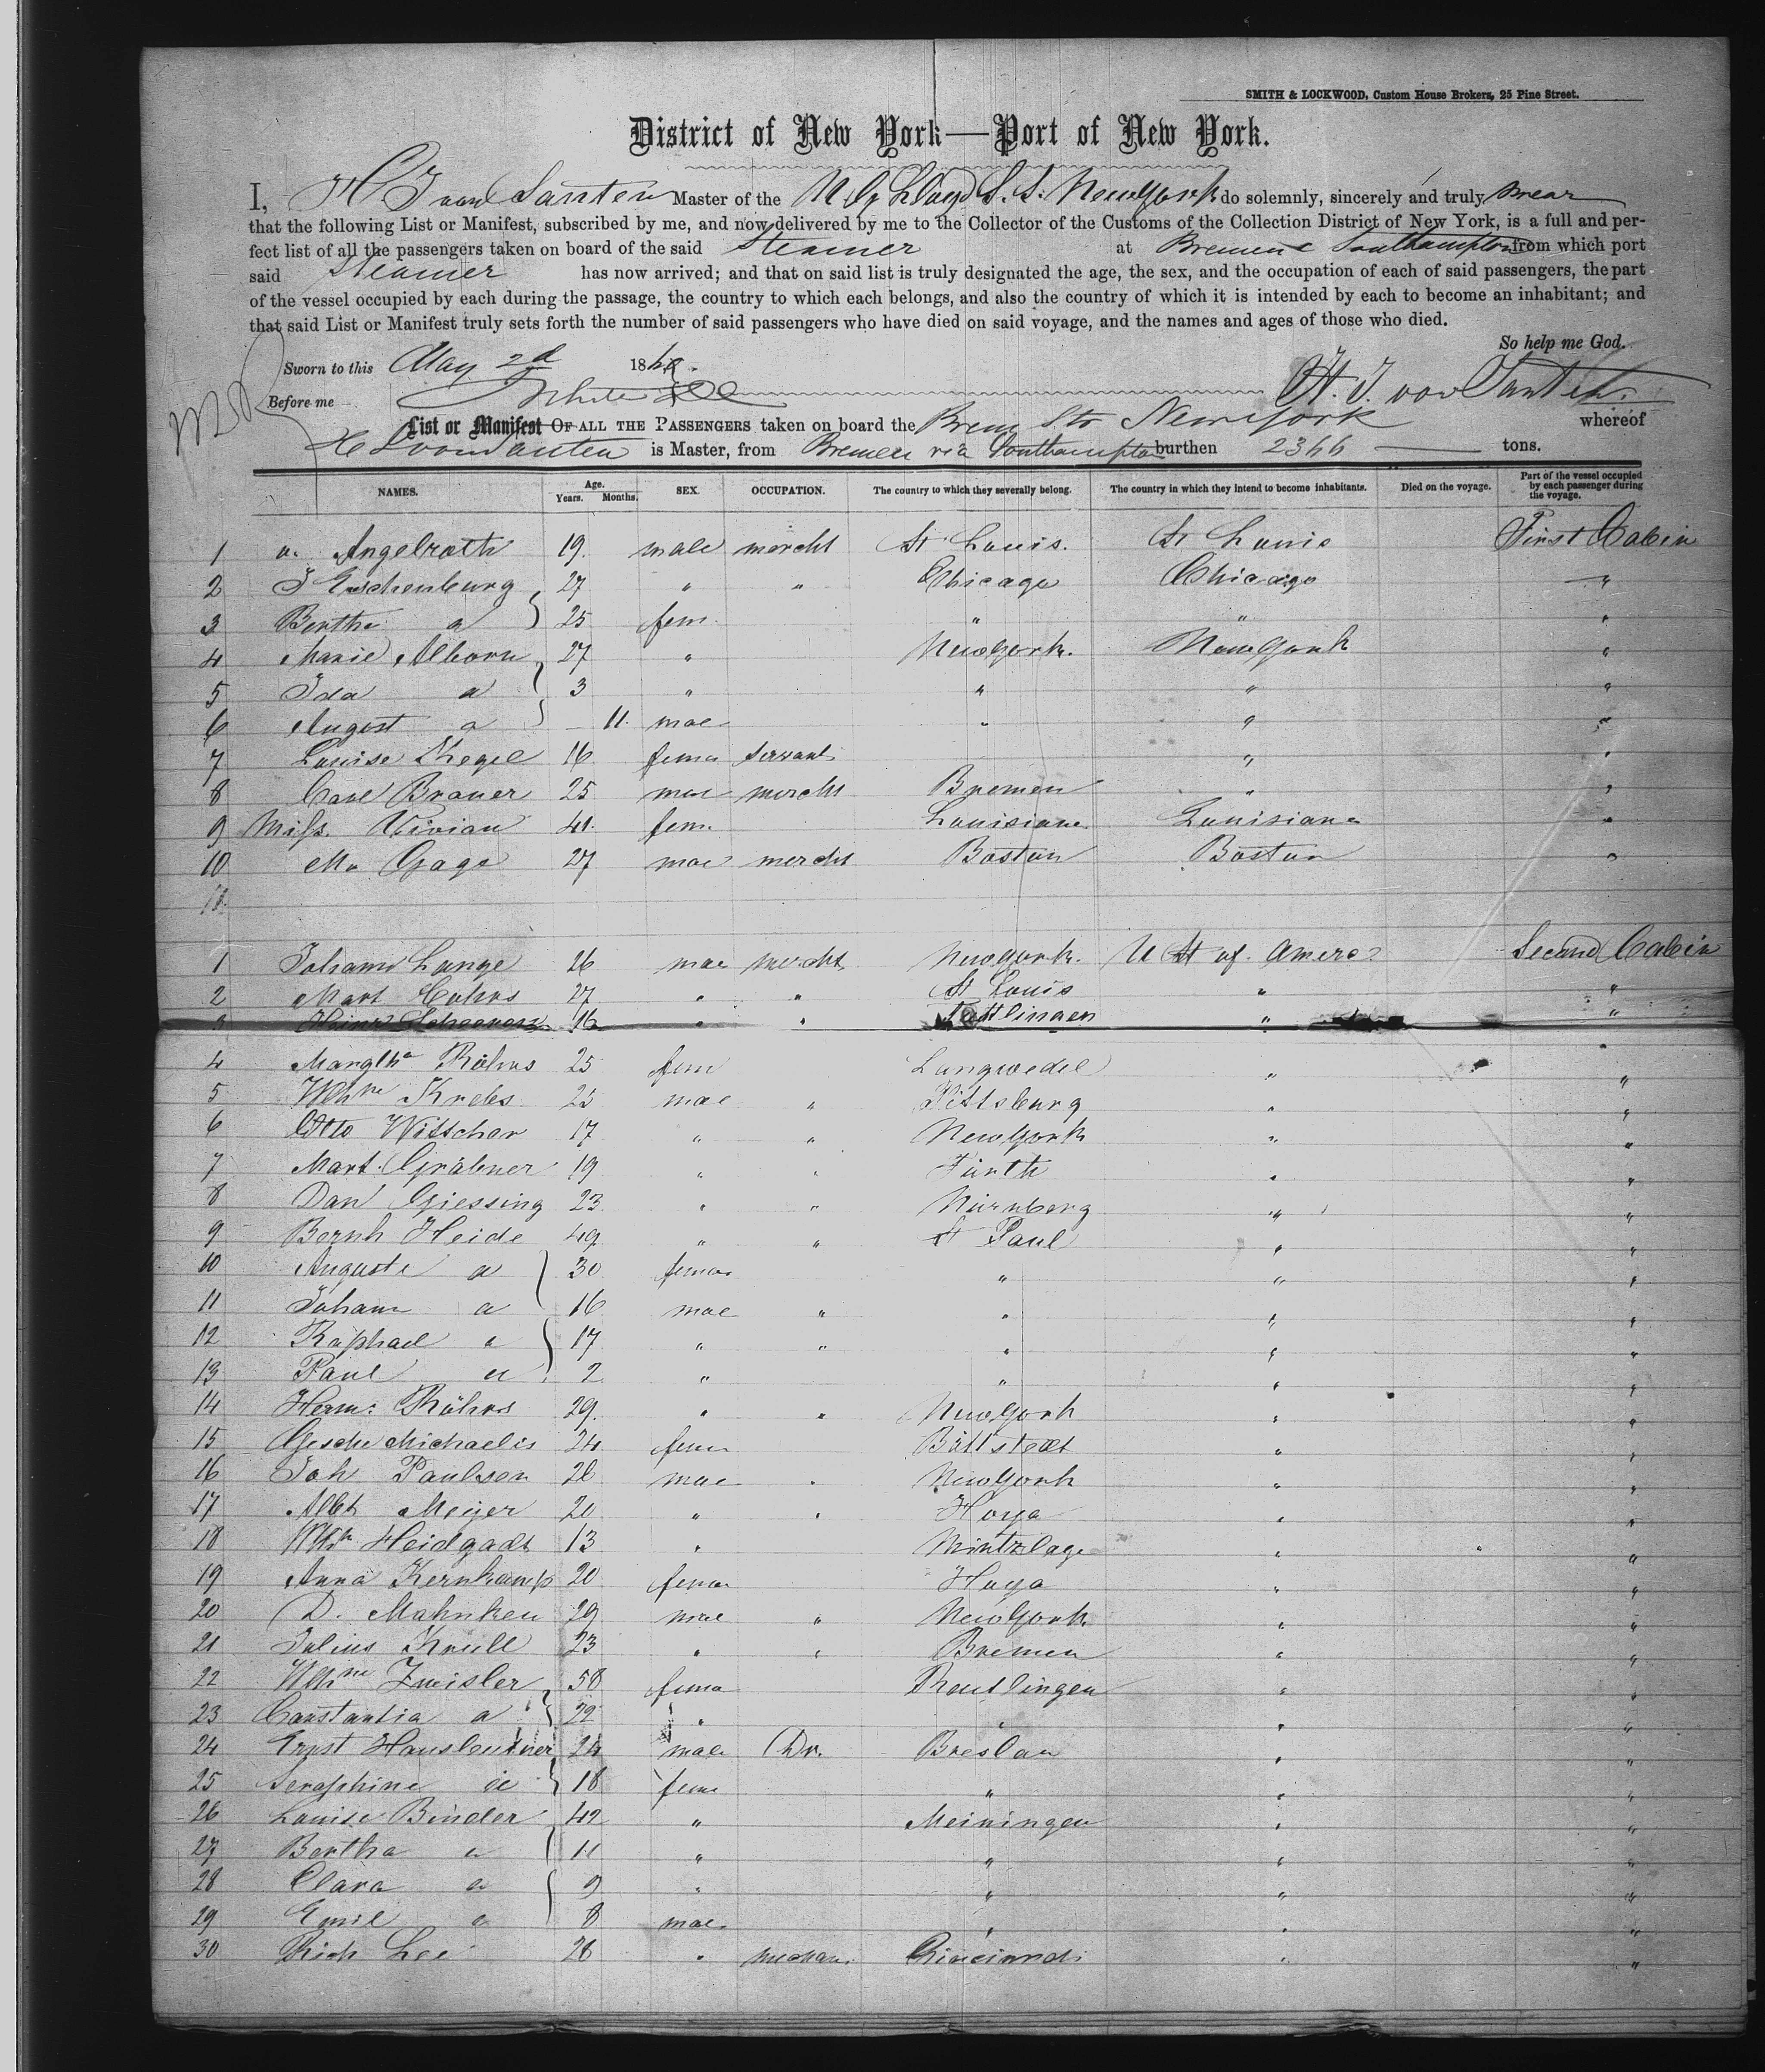 SMITH & LOCKWOOD, Custom House Brokers, 25 Pine Street.
District of New York—Port of New York.
I, H J von Santen Master of the N. G. Lloyd S. S. New York do solemnly, sincerely and truly swear
that the following List or Manifest, subscribed by me, and now delivered by me to the Collector of the Customs of the Collection District of New York, is a full and per-
fect list of all the passengers taken on board of the said Steamer at Bremen & Southampton from which port
said Steamer has now arrived; and that on said list is truly designated the age, the sex, and the occupation of each of said passengers, the part
of the vessel occupied by each during the passage, the country to which each belongs, and also the country of which it is intended by each to become an inhabitant; and
that said List or Manifest truly sets forth the number of said passengers who have died on said voyage, and the names and ages of those who died.
So help me God.
Sworn to this May 2d 186
H. J. von Santen.
Before me
List or Manifest OF ALL THE PASSENGERS taken on board the Brem Str New York whereof
H J von Santen is Master, from Bremen via Southampton burthen 2366 tons.
NAMES. Age. Years. Months. SEX. OCCUPATION. The country to which they severally belong. The country in which they intend to become inhabitants. Died on the voyage. Part of the vessel occupied by each passenger during the voyage.
1 a. Angelroth 19. male mercht St Louis. St Louis First Cabin
2 J Eschenburg 27 " " Chicago Chicago "
3 Berthe a 25 fem. " " "
4 Marie Alborn 27 " New York. New York "
5 Ida a 3 " " " "
6 August a — 11. mae " " "
7 Louise Kegel 16 fema servant " "
8 Carl Brauer 25 mae mercht Bremen " "
9 Miss. Vivian 41. fem. Louisiana Louisiana "
10 Mr Gage 27 mae mercht Boston Boston "
11.
1 Johann Lange 26 mae mercht New York. U St of Amerc Second Cabin
2 Mart Cohrs 27 " " St Louis " "
3 Heinr 16 " " " "
4 Margtha Röhrs 25 fem Langwedel " "
5 Whne Krebs 23 mae " Pittsburg " "
6 Otto Wittscher 17 " " New York " "
7 Mart. Gräbner 19 " " Fürth " "
8 Dan Giessing 23 " " Nürnberg " "
9 Bernh Heide 49 " " St Paul " "
10 Auguste a 30 fema " " "
11 Johann a 16 mae " " " "
12 Raphael a 17 " " " " "
13 Paul a 2 " " " "
14 Herm: Röhrs 29. " " New York " "
15 Gesche Michaelis 24 fem Büttstedt " "
16 Joh Paulsen 28 mae " New York " "
17 Albt Meyer 20 " " Hoya " "
18 Heidgadt 13 " " "
19 Anna Kernkamp 20 fema Hoya " "
20 D. Mahnken 29 mae " New York " "
21 Julius Krüll 23 " " Bremen " "
22 Whne Zwisler 58 fema Reutlingen " "
23 Constantia a 22 " " " "
24 Ernst Hausleutner 24 mae Dr. Breslau " "
25 Seraphine a 18 feme " " "
26 Louise Binder 42 " Meiningen " "
27 Bertha a 11 " " " "
28 Clara a 9 " " " "
29 Emil a 8 mae " " "
30 Rich Lee 28 " mechan. Cincinnati " "